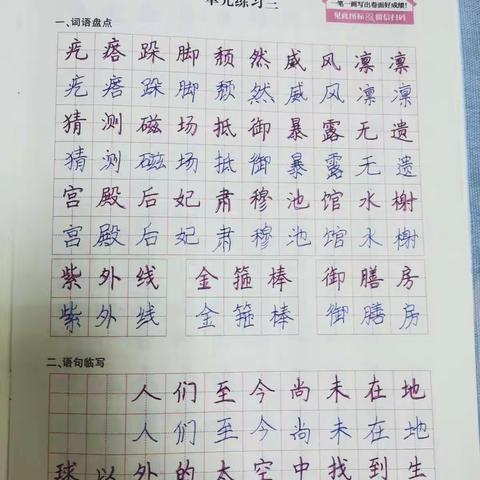 单元练习三
一笔一画写出卷面好成绩!
见此图标 微信扫码
一、词语盘点
疙瘩跺脚颓然威风凛凛
疙瘩跺脚颓然威风凛凛
猜测磁场抵御暴露无遗
猜测磁场抵御暴露无遗
宫殿后妃肃穆池馆水榭
宫殿后妃肃穆池馆水榭
紫外线 金箍棒 御膳房
紫外线 金箍棒 御膳房
二、语句临写
人们至今尚未在地
人们至今尚未在地
球以外的太空中找到生